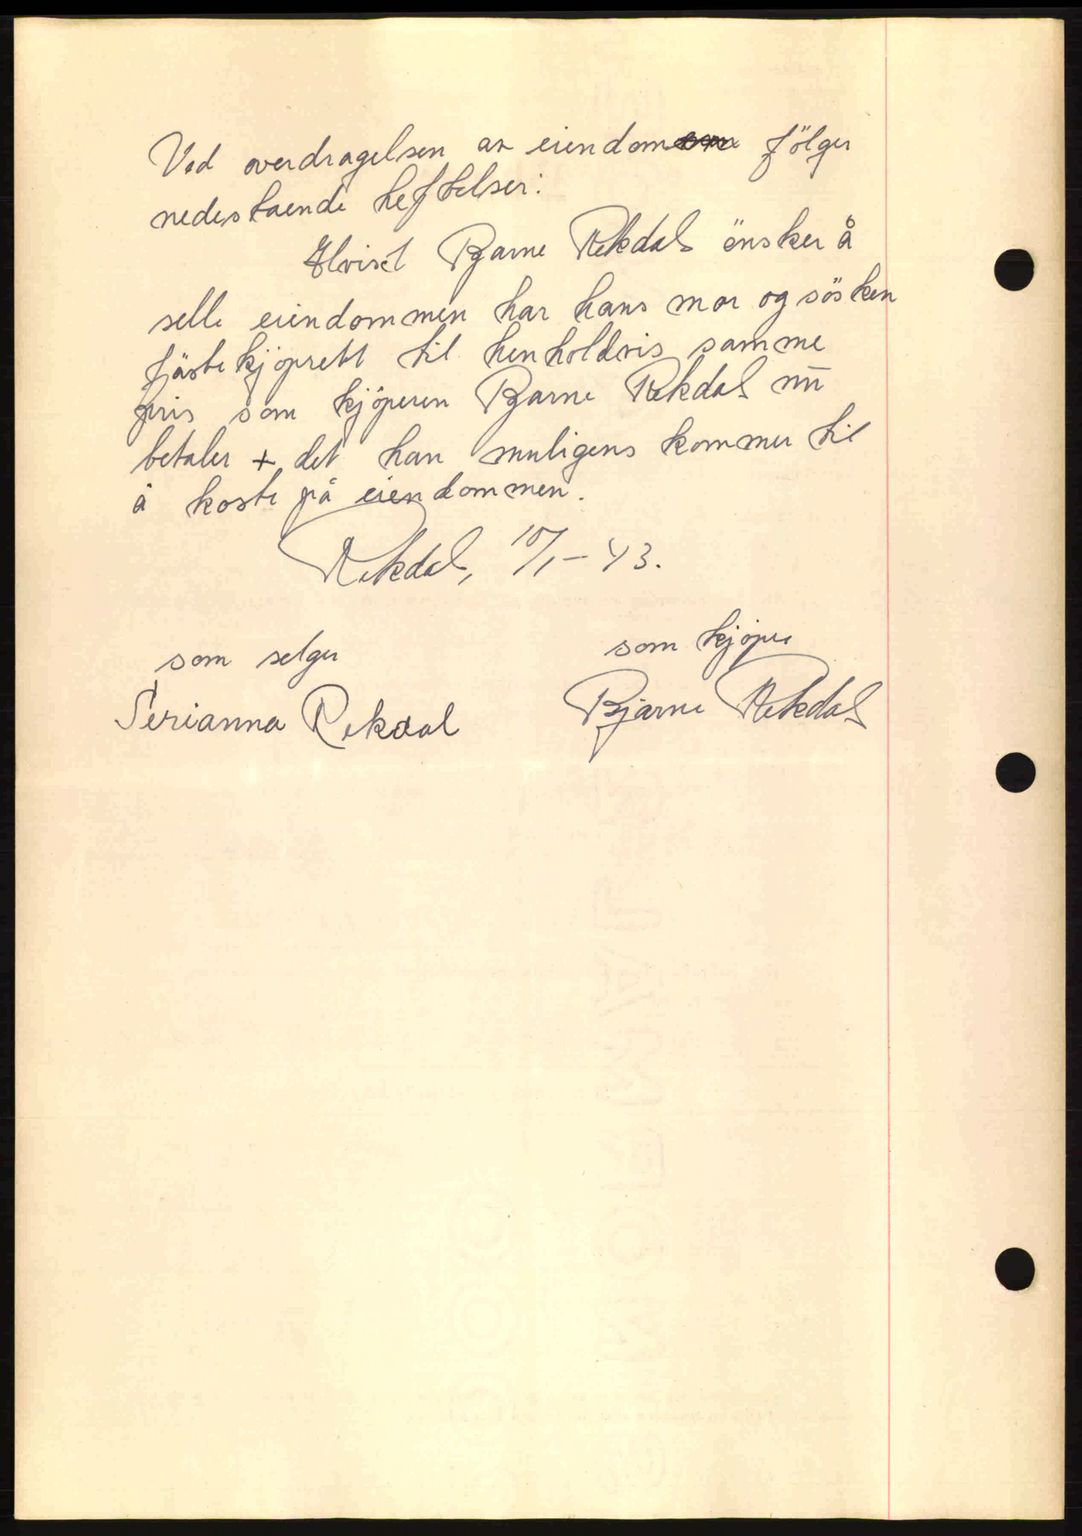 Ved overdragelsen av eiendom følger
nedestaende heftelser:
Hvist Bjarne Rekdal önsker å
selle eiendommen har hans mor og söskен
fäste kjöprett til henholdvis samme
pris som kjöperen Bjarne Rekdal nū
betaler + det han muligens kommer til
å koste på eiendommen.
Rekdal, 10/1-43.
som selger
Serianna Rekdal
som kjöper
Bjarne Rekdal